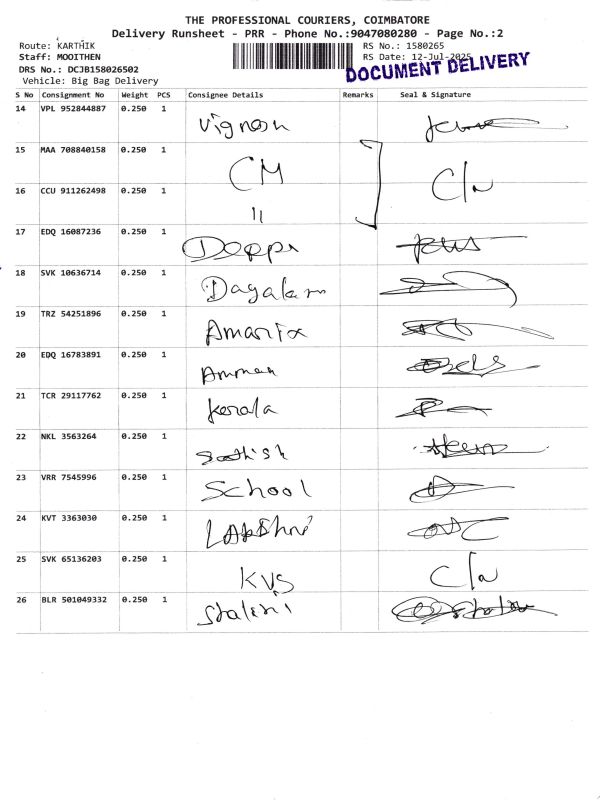 THE PROFESSIONAL COURIERS, COIMBATORE
Delivery Runsheet - PRR - Phone No.:9047080280 - Page No.:2
Route: KARTHIK
RS No.: 1580265
Staff: MOOITHEN
RS Date: 12-Jul-2025
DRS No.: DCJB158026502
DOCUMENT DELIVERY
Vehicle: Big Bag Delivery
S No Consignment No Weight PCS Consignee Details Remarks Seal & Signature
14 VPL 952844887 0.250 1
Vignesh
15 MAA 708840158 0.250 1
CM
16 CCU 911262498 0.250 1
"
17 EDQ 16087236 0.250 1
Deepi
18 SVK 10636714 0.250 1
19 TRZ 54251896 0.250 1
20 EDQ 16783891 0.250 1
Amman
21 TCR 29117762 0.250 1
Kerala
22 NKL 3563264 0.250 1
Sathish
23 VRR 7545996 0.250 1
School
24 KVT 3363030 0.250 1
25 SVK 65136203 0.250 1
KVS
26 BLR 501049332 0.250 1
Stalin